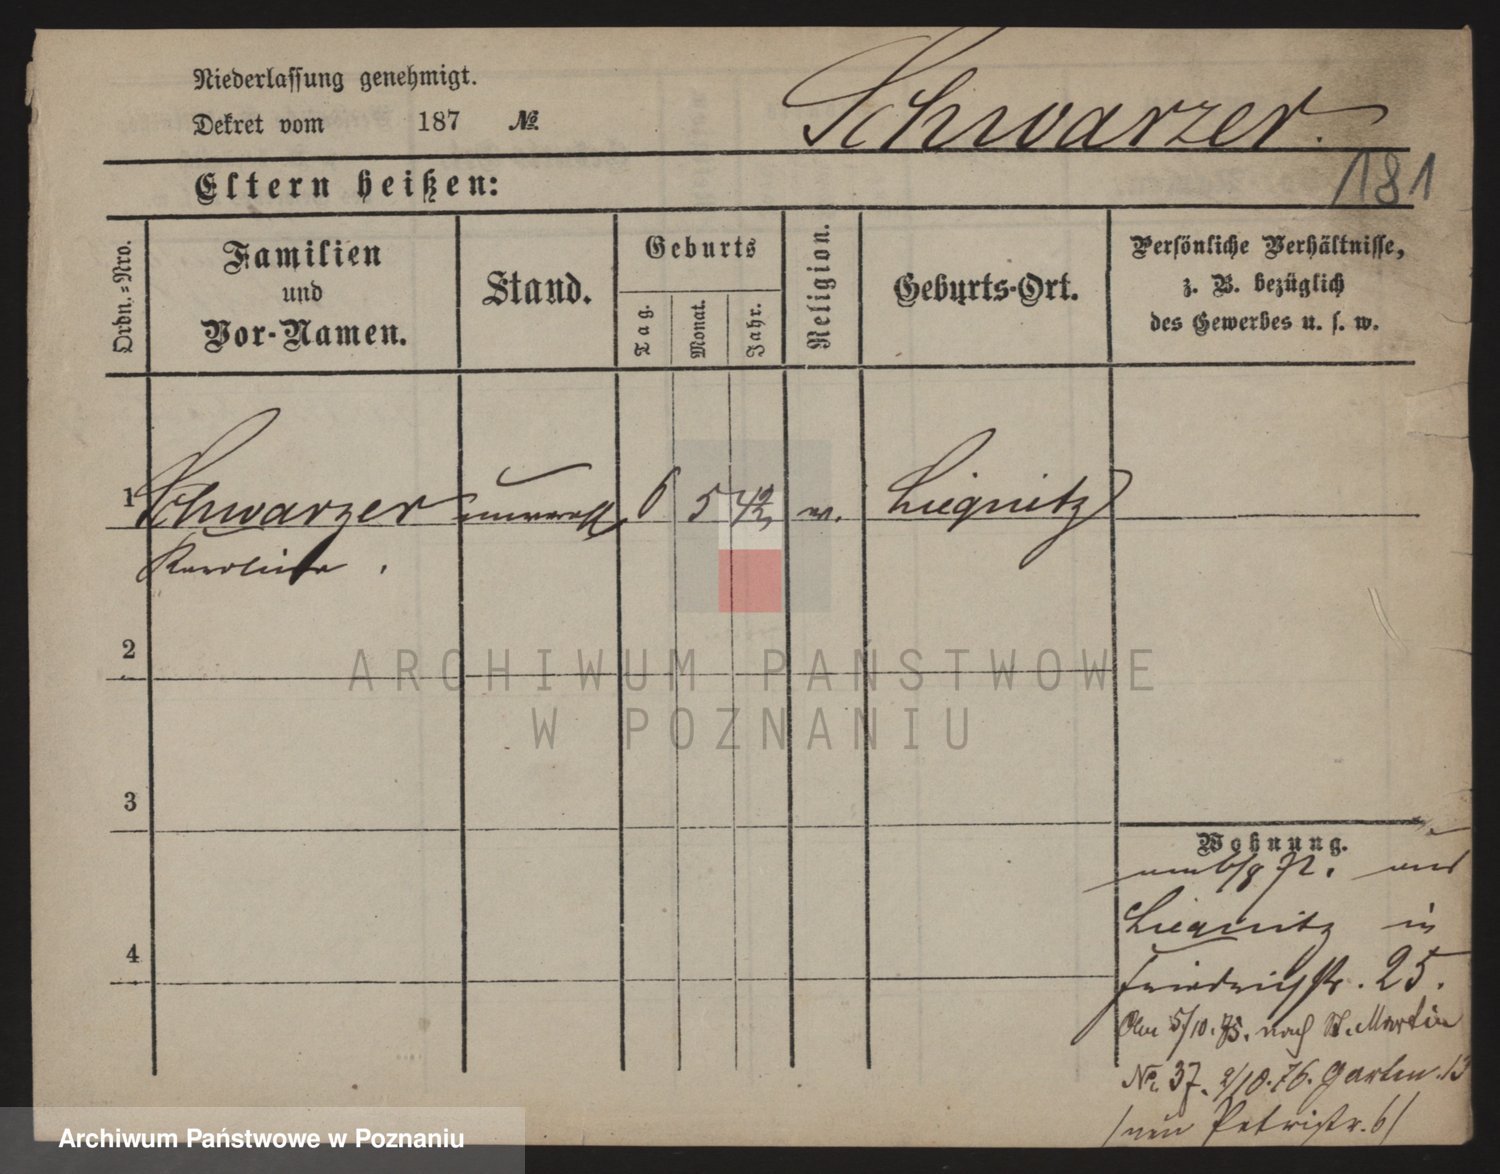 Niederlassung genehmigt.
Dekret vom 187 №
Schwarzer.
181
Eltern heißen:
Ordn.-Nro.
Familien
und
Vor-Namen.
Stand.
Geburts
Tag.
Monat.
Jahr.
Religion.
Geburts-Ort.
Persönliche Verhältnisse,
z. B. bezüglich
des Gewerbes u. s. w.
1 Schwarzer unverehl. 6 5 42 Liegnitz
Karoline.
2
3
4
Wohnung.
72. aus
Liegnitz in
Friedrichstr. 25.
Am 5/10. 75. nach St. Martin
No. 37. 2/10. 76. Garten. 13
neu Petristr. 6
ARCHIWUM PAŃSTWOWE
W POZNANIU
Archiwum Państwowe w Poznaniu